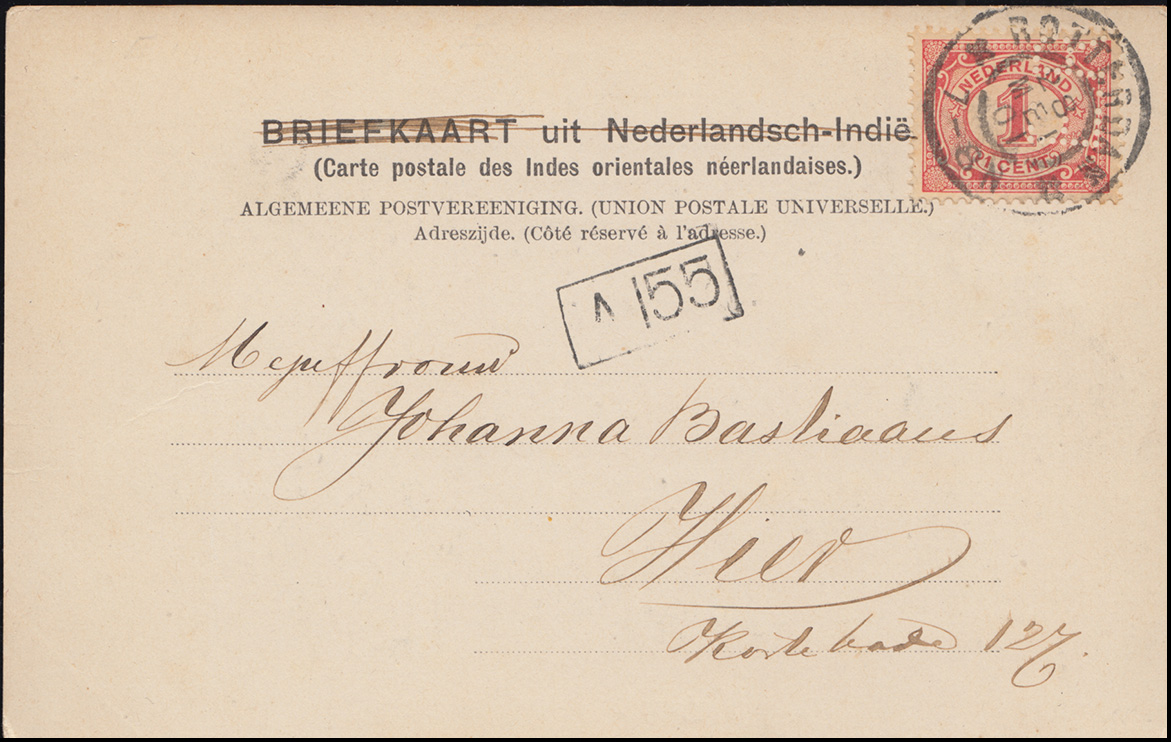 BRIEFKAART uit Nederlandsch-Indië
(Carte postale des Indes orientales néerlandaises.)
ALGEMEENE POSTVEREENIGING. (UNION POSTALE UNIVERSELLE.)
Adreszijde. (Côté réservé à l'adresse.)
NEDERLAND
1
(1 CENT)
ROTTERDAM
A 55
Mejuffrouw
Johanna Bastiaans
Hier
Korte kade 127.